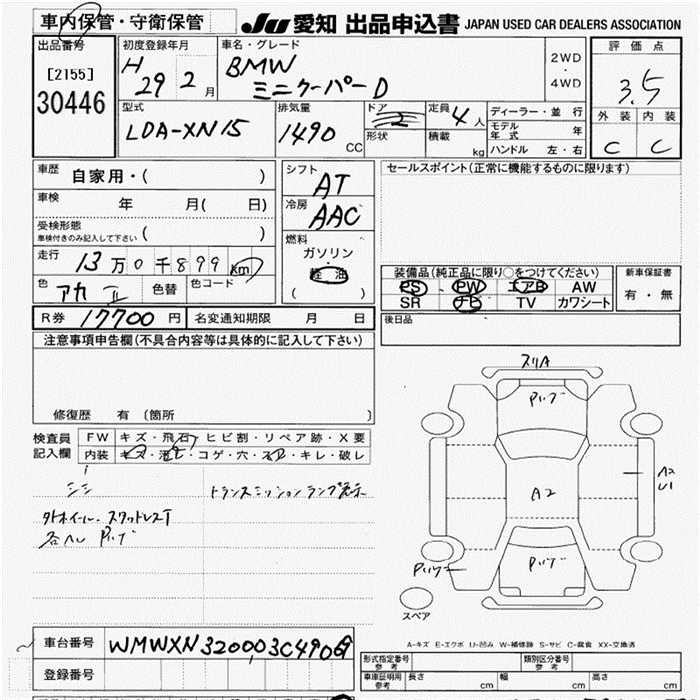 車内保管・守衛保管
JU 愛知 出品申込書 JAPAN USED CAR DEALERS ASSOCIATION
出品番号
[2155]
30446
初度登録年月
H 29 2月
車名・グレード
BMW
ミニクーパーD
2WD
・
4WD
評価点
3.5
外装 内装
C C
型式
LDA-XN15
排気量
1490 CC
ドア
2
形状
定員 4人
積載 kg
ディーラー・並行
モデル年式 年
ハンドル 左・右
車歴
自家用・( )
車検
年 月( 日)
受検形態
車検付きのみ記入して下さい ( )
走行
13万0千899 km
色
アカ II
色替
色コード
シフト
AT
冷房
AAC
燃料
ガソリン
・
軽油
( )
セールスポイント(正常に機能するものに限ります)
装備品(純正品に限り○をつけてください)
PS PW エアB AW
SR ナビ TV カワシート
新車保証書
有・無
R券 17700円
名変通知期限 月 日
後日品
注意事項申告欄(不具合内容等は具体的に記入して下さい)
修復歴 有 〔箇所 〕
検査員記入欄
FW キズ・飛石・ヒビ割・リペア跡・X要
内装 キズ・汚レ・コゲ・穴・スレ・キレ・破レ
シミ
トランスミッションランプ表示
外ホイール・スタッドレスT
各ヘレ Pハゲ
スリA
Pハゲ
A2
A2
U1
Pハゲ
Pハゲ
スペア
A-キズ E-エクボ U-凹み W-補修跡 S-サビ C-腐食 XX-交換済
車台番号
WMWXN320003C490
登録番号
形式指定番号
参考
類別区分番号
参考
車庫証明用
参考
長さ cm
幅 cm
高さ cm